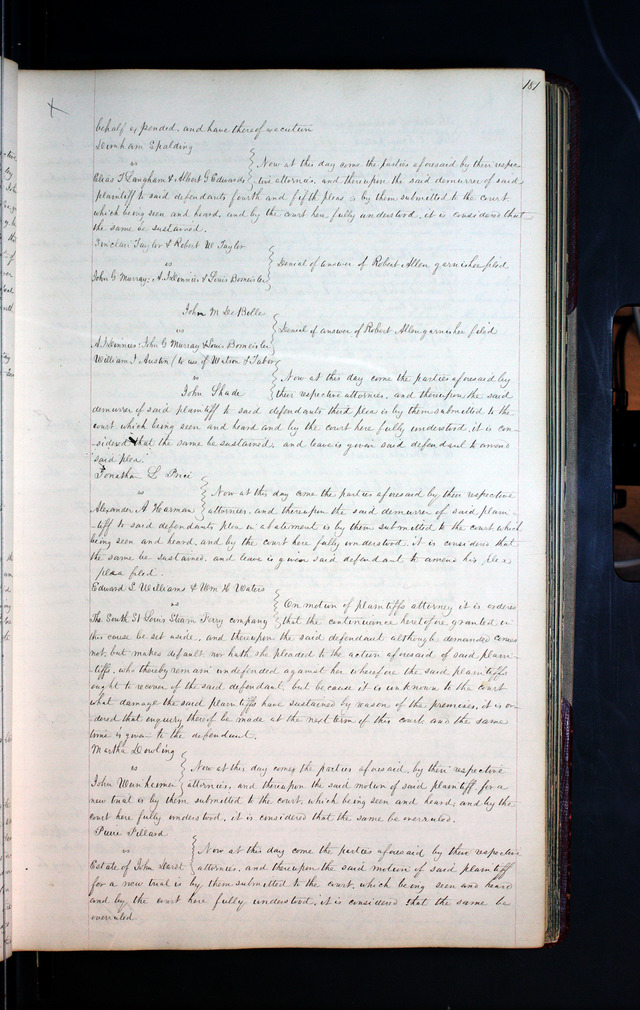 181
behalf expended, and have thereof execution
Spalding
vs
Elias T Langham & Albert G Edwards } Now at this day come the parties aforesaid by their respec-
tive attornies, and thereupon the said demurrer of said
plaintiff to said defendants fourth and fifth pleas is by them submitted to the court
which being seen and heard, and by the court here fully understood, it is considered that
the same be sustained.
Sinclair Taylor & Robert W Taylor
vs } Denial of answer of Robert Allen garnishee filed
John G Murray, & Louis Bomeisler
John M De Bolle
vs } Denial of answer of Robert Allen garnishee filed
John G Murray & Louis Bomeisler
William J Austin (to use of Watson & Tabor
vs } Now at this day come the parties aforesaid by
John Shade their respective attornies, and thereupon the said
demurrer of said plaintiff to said defendants third plea is by them submitted to the
court which being seen and heard and by the court here fully understood, it is con-
sidered that the same be sustained, and leave is given said defendant to amend
said plea.
Jonathan L Price
vs } Now at this day come the parties aforesaid by their respective
Alexander A Harman attornies, and thereupon the said demurrer of said plain-
tiff to said defendants plea in abatement is by them submitted to the court, which
being seen and heard, and by the court here fully understood, it is considered that
the same be sustained, and leave is given said defendant to amend his plea
plea filed.
Edward S Williams & Wm H Waters
vs } On motion of plaintiffs attorney it is ordered
The South St Louis Steam Ferry company that the continuance heretofore granted in
this cause be set aside, and thereupon the said defendant although demanded comes
not, but makes default, nor hath she pleaded to the action aforesaid of said plain-
tiffs, who thereby remain undefended against her wherefore the said plaintiffs
ought to recover of the said defendant, but because it is unknown to the court
what damage the said plaintiffs have sustained by reason of the premises, it is or-
dered that enquiry thereof be made at the next term of this court and the same
time is given to the defendant.
Martha Dowling
vs } Now at this day comes the parties aforesaid, by their respective
John attornies, and thereupon the said motion of said plaintiff for a
new trial is by them submitted to the court, which being seen and heard, and by the
court here fully understood, it is considered that the same be overruled.
Pierre Pillard
vs } Now at this day come the parties aforesaid by their respective
Estate of John Darst attornies, and thereupon the said motion of said plaintiff
for a new trial is by them submitted to the court, which being seen and heard
and by the court here fully understood, it is considered that the same be
overruled